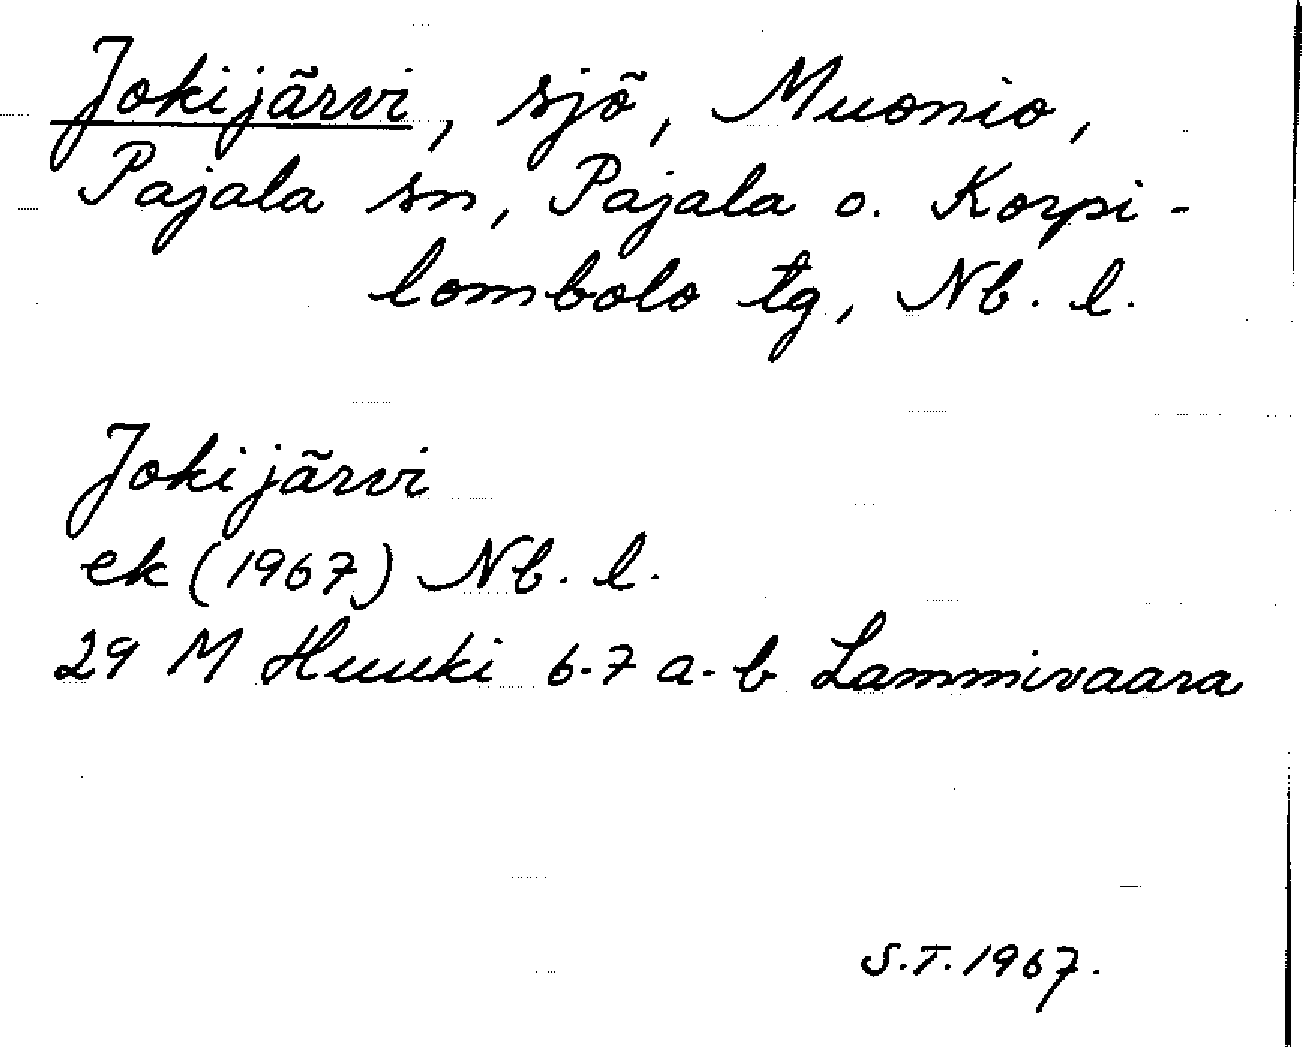 Jokijärvi, sjö, Muonio,
Pajala sn, Pajala o. Korpi-
lombolo tg, Nb. l.
Jokijärvi
ek (1967) Nb. l.
29 M Huuki 6-7 a-b Lammivaara
S.T. 1967.